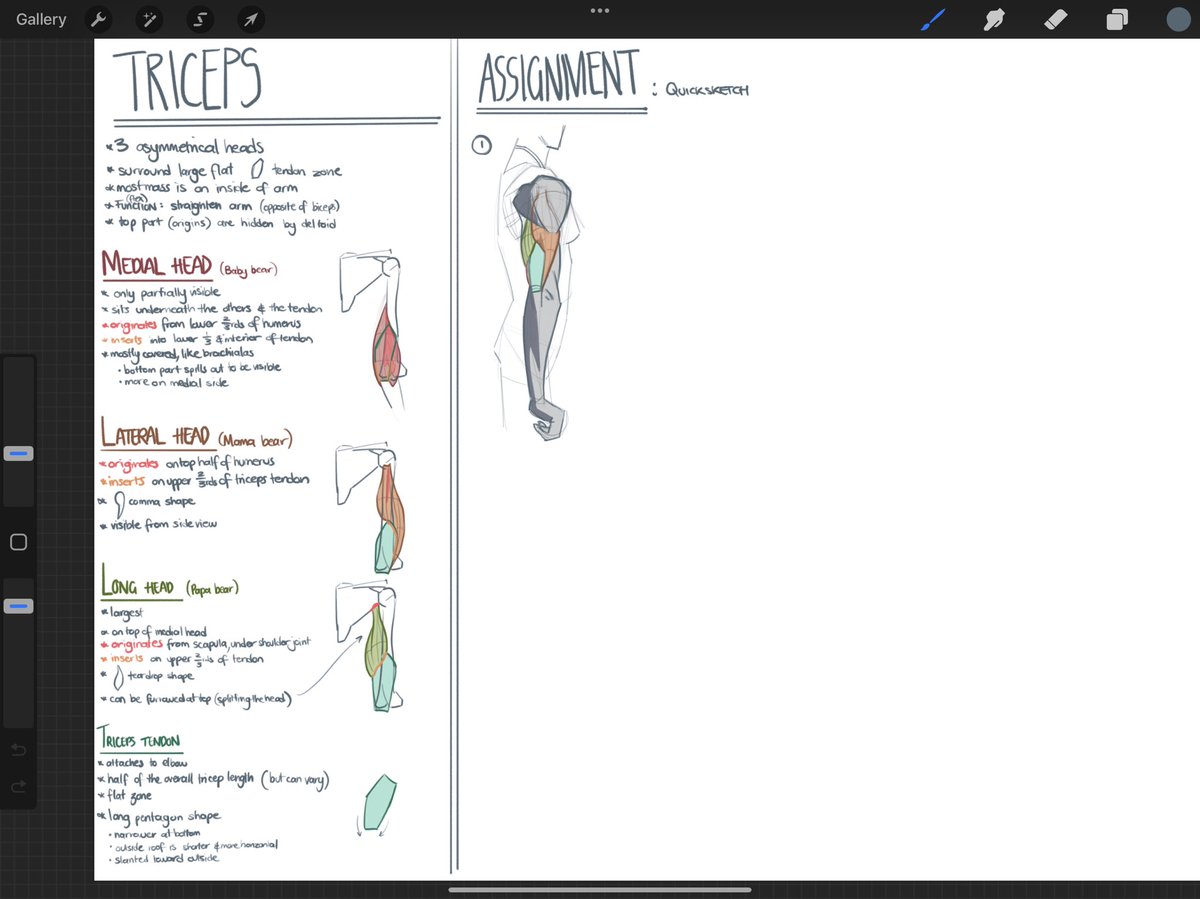 Gallery
TRICEPS
* 3 asymmetrical heads
* surround large flat tendon zone
* most mass is on inside of arm
(flex)
* FUNCTION: straighten arm (opposite of biceps)
* top part (origins) are hidden by deltoid
MEDIAL HEAD (Baby bear)
* only partially visible
* sits underneath the others & the tendon
* originates from lower 2/3rds of humerus
* inserts into lower 1/3 & interior of tendon
* mostly covered, like brachialas
• bottom part spills out to be visible
• more on medial side
LATERAL HEAD (Mama bear)
* originates on top half of humerus
* inserts on upper 2/3rds of triceps tendon
* comma shape
* visible from side view
LONG HEAD (Papa bear)
* largest
* on top of medial head
* originates from scapula, under shoulder joint
* inserts on upper 2/3rds of tendon
* teardrop shape
* can be furrowed at top (splitting the head)
TRICEPS TENDON
* attaches to elbow
* half of the overall tricep length (but can vary)
* flat zone
* long pentagon shape
• narrower at bottom
• outside roof is shorter & more horizontal
• slanted toward outside
ASSIGNMENT : QUICKSKETCH
1